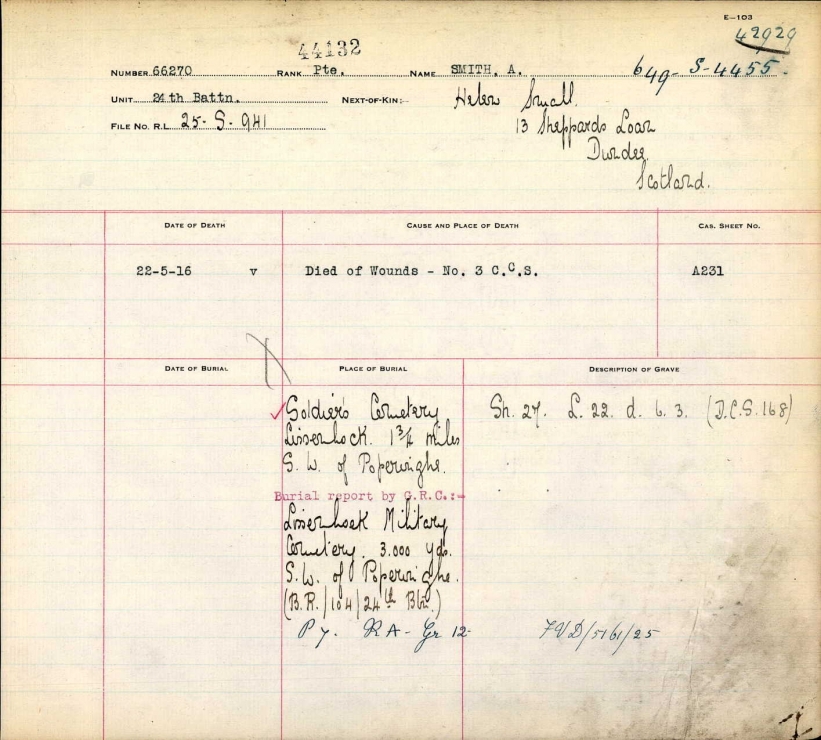 E—103
44132
42929
NUMBER 66270 RANK Pte. NAME SMITH, A. 649- S-4455.
UNIT 24th Battn. NEXT-OF-KIN:- Helen Small
FILE NO. R.L. 25-S-941 13 Sheppards Loan
Dundee
Scotland.
DATE OF DEATH CAUSE AND PLACE OF DEATH CAS. SHEET NO.
22-5-16 v Died of Wounds - No. 3 C.C.S. A231
DATE OF BURIAL PLACE OF BURIAL DESCRIPTION OF GRAVE
Soldier's Cemetery Sh. 27. L. 22. d. 6. 3. (D.C.S. 168)
Lissenhock. 1 3/4 miles
S. W. of Poperinghe.
Burial report by G.R.C.:-
Lissenhoek Military
Cemetery 3.000 yds.
S.W. of Poperinghe.
(B.R./104/24th Btn.)
P 7. R A - Gr 12